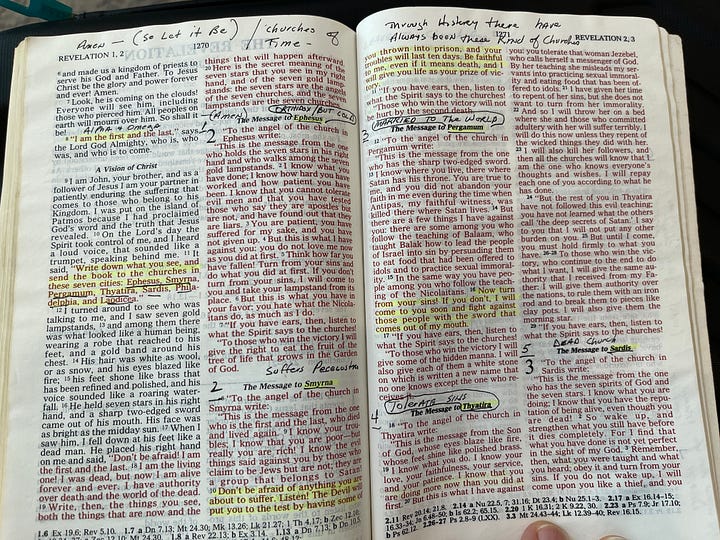 Amen — (So Let it Be) / churches of Time -
REVELATION 1, 2
1270
6 and made us a kingdom of priests to
serve his God and Father. To Jesus
Christ be the glory and power forever
and ever! Amen.
7 Look, he is coming on the clouds!
Everyone will see him, including
those who pierced him. All peoples on
earth will mourn over him. So shall it
be!
Alpha & Omega
8 "I am the first and the last," says
the Lord God Almighty, who is, who
was, and who is to come.
A Vision of Christ
9 I am John, your brother, and as a
follower of Jesus I am your partner in
patiently enduring the suffering that
comes to those who belong to his
Kingdom. I was put on the island of
Patmos because I had proclaimed
God's word and the truth that Jesus
revealed. 10 On the Lord's day the
Spirit took control of me, and I heard
a loud voice, that sounded like a
trumpet, speaking behind me. 11 It
said, "Write down what you see, and
send the book to the churches in
these seven cities: Ephesus, Smyrna,
Pergamum, Thyatira, Sardis, Phila-
delphia, and Laodicea."
12 I turned around to see who was
talking to me, and I saw seven gold
lampstands, 13 and among them there
was what looked like a human being,
wearing a robe that reached to his
feet, and a gold band around his
chest. 14 His hair was white as wool,
or as snow, and his eyes blazed like
fire; 15 his feet shone like brass that
has been refined and polished, and his
voice sounded like a roaring water-
fall. 16 He held seven stars in his right
hand, and a sharp two-edged sword
came out of his mouth. His face was
as bright as the midday sun. 17 When I
saw him, I fell down at his feet like a
dead man. He placed his right hand
on me and said, "Don't be afraid! I am
the first and the last. 18 I am the living
one! I was dead, but now I am alive
forever and ever. I have authority
over death and the world of the dead.
19 Write, then, the things you see,
both the things that are now and the
things that will happen afterward.
20 Here is the secret meaning of the
seven stars that you see in my right
hand, and of the seven gold lamp-
stands: the seven stars are the angels
of the seven churches, and the seven
lampstands are the seven churches.
(Amen) ORTHODOX / BUT COLD
The Message to Ephesus
2 "To the angel of the church in
Ephesus write:
"This is the message from the one
who holds the seven stars in his right
hand and who walks among the seven
gold lampstands. 2 I know what you
have done; I know how hard you have
worked and how patient you have
been. I know that you cannot tolerate
evil men and that you have tested
those who say they are apostles but
are not, and have found out that they
are liars. 3 You are patient, you have
suffered for my sake, and you have
not given up. 4 But this is what I have
against you: you do not love me now
as you did at first. 5 Think how far you
have fallen! Turn from your sins and
do what you did at first. If you don't
turn from your sins, I will come to
you and take your lampstand from its
place. 6 But this is what you have in
your favor: you hate what the Nicola-
itans do, as much as I do.
7 "If you have ears, then, listen to
what the Spirit says to the churches!
"To those who win the victory I will
give the right to eat the fruit of the
tree of life that grows in the Garden
of God.
2
The Message to Smyrna
8 "To the angel of the church in
Smyrna write:
"This is the message from the one
who is the first and the last, who died
and lived again. 9 I know your trou-
bles; I know that you are poor—but
really you are rich! I know the evil
things said against you by those who
claim to be Jews but are not; they are
a group that belongs to Satan!
10 Don't be afraid of anything you are
about to suffer. Listen! The Devil will
put you to the test by having some of
Through History there have
Always been these Kind of Churches
1271
REVELATION 2, 3
you thrown into prison, and your
troubles will last ten days. Be faithful
to me, even if it means death, and I
will give you life as your prize of vic-
tory.
11 "If you have ears, then, listen to
what the Spirit says to the churches!
"Those who win the victory will not
be hurt by the second death.
MARRIED TO THE WORLD
The Message to Pergamum
12 "To the angel of the church in
Pergamum write:
"This is the message from the one
who has the sharp two-edged sword.
13 I know where you live, there where
Satan has his throne. You are true to
me, and you did not abandon your
faith in me even during the time when
Antipas, my faithful witness, was
killed there where Satan lives. 14 But
there are a few things I have against
you: there are some among you who
follow the teaching of Balaam, who
taught Balak how to lead the people
of Israel into sin by persuading them
to eat food that had been offered to
idols and to practice sexual immoral-
ity. 15 In the same way you have peo-
ple among you who follow the teach-
ing of the Nicolaitans. 16 Now turn
from your sins! If you don't, I will
come to you soon and fight against
those people with the sword that
comes out of my mouth.
17 "If you have ears, then, listen to
what the Spirit says to the churches!
"To those who win the victory I will
give some of the hidden manna. I will
also give each of them a white stone
on which is written a new name that
no one knows except the one who re-
ceives it.
TOLERATE SINS
4
The Message to Thyatira
18 "To the angel of the church in
Thyatira write:
"This is the message from the Son
of God, whose eyes blaze like fire,
whose feet shine like polished brass.
19 I know what you do. I know your
love, your faithfulness, your service,
and your patience. I know that you
are doing more now than you did at
first. 20 But this is what I have against
you: you tolerate that woman Jezebel,
who calls herself a messenger of God.
By her teaching she misleads my ser-
vants into practicing sexual immoral-
ity and eating food that has been of-
fered to idols. 21 I have given her time
to repent of her sins, but she does not
want to turn from her immorality.
22 And so I will throw her on a bed
where she and those who committed
adultery with her will suffer terribly. I
will do this now unless they repent of
the wicked things they did with her.
23 I will also kill her followers, and
then all the churches will know that I
am the one who knows everyone's
thoughts and wishes. I will repay
each one of you according to what he
has done.
24 "But the rest of you in Thyatira
have not followed this evil teaching;
you have not learned what the others
call 'the deep secrets of Satan.' I say
to you that I will not put any other
burden on you. 25 But until I come,
you must hold firmly to what you
have. 26-28 To those who win the vic-
tory, who continue to the end to do
what I want, I will give the same au-
thority that I received from my Fa-
ther: I will give them authority over
the nations, to rule them with an iron
rod and to break them to pieces like
clay pots. I will also give them the
morning star.
29 "If you have ears, then, listen to
what the Spirit says to the churches!
5
DEAD CHURCH
The Message to Sardis
3 "To the angel of the church in
Sardis write:
"This is the message from the one
who has the seven spirits of God and
the seven stars. I know what you are
doing; I know that you have the repu-
tation of being alive, even though you
are dead! 2 So wake up, and
strengthen what you still have before
it dies completely. For I find that
what you have done is not yet perfect
in the sight of my God. 3 Remember,
then, what you were taught and what
you heard; obey it and turn from your
sins. If you do not wake up, I will
come upon you like a thief, and you
1.6 Ex 19.6; Rev 5.10. 1.7 a Dn 7.13; Mt 24.30; Mk 13.26; Lk 21.27; 1 Th 4.17; b Zec 12.10;
2.11 Rev 20.14; 21.8. 2.14 a Nu 22.5, 7; 31.16; Dt 23.4; b Nu 25.1-3. 2.17 a Ex 16.14-15;